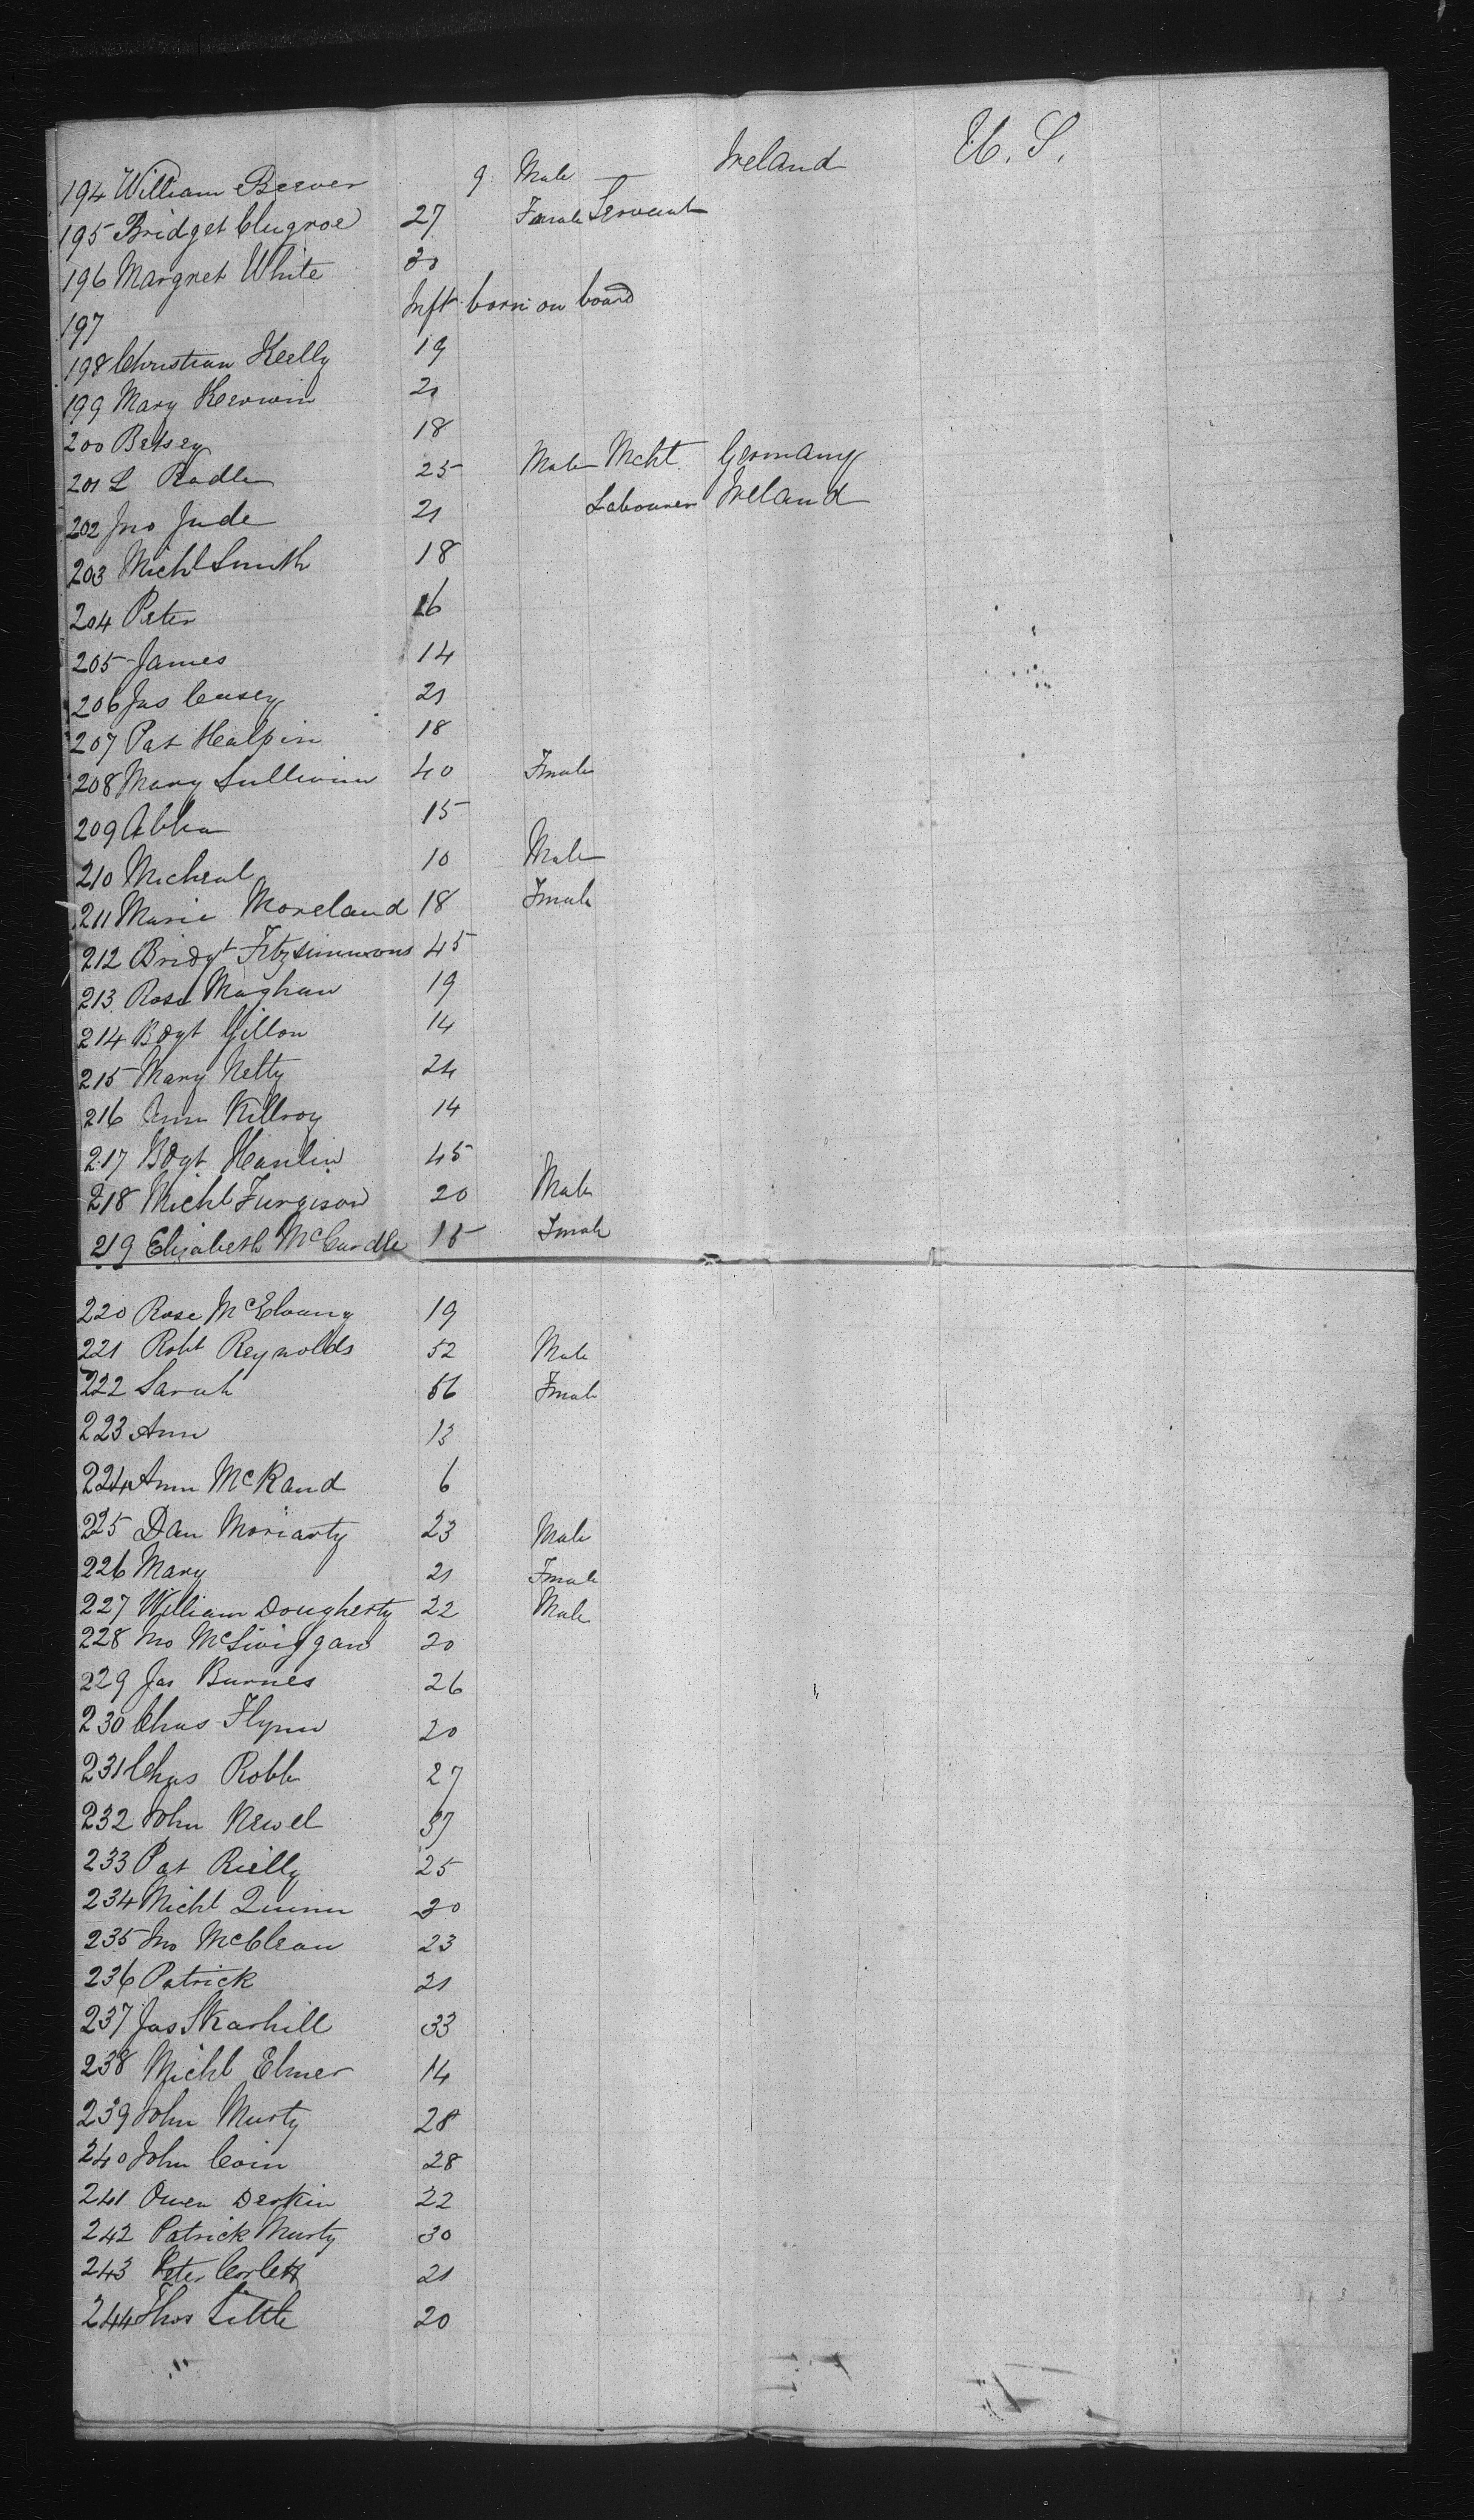 194 William Beever 9 Male — Ireland U. S.
195 Bridget Clugroe 27 Female Servant
196 Margret White 20
197 Inft born on board
198 Christian Kelly 19
199 Mary Kerwin 21
200 Betsey 18
201 L Radle 25 Male Mcht Germany
202 Jno Jude 21 Labourer Ireland
203 Michl Smith 18
204 Peter 16
205 James 14
206 Jas Casey 21
207 Pat Healpin 18
208 Mary Sullivian 40 Fmale
209 Abba 15
210 Micheal 10 Male
211 Marie Moreland 18 Fmale
212 Bridgt Fitzsimmons 45
213 Rose Maghan 19
214 Bdgt Gillon 14
215 Mary Netty 24
216 Ann Killroy 14
217 Bdgt Hanlin 45
218 Michl Furgison 20 Male
219 Elizabeth McCardle 15 Fmale
220 Rose McElvany 19
221 Robt Reynolds 52 Male
222 Sarah 56 Fmale
223 Ann 13
224 Ann McRand 6
225 Dan Moriarty 23 Male
226 Mary 21 Fmale
227 William Dougherty 22 Male
228 Jno McSwiggan 20
229 Jas Burnes 26
230 Chas Flynn 20
231 Chas Robb 27
232 John Newel 37
233 Pat Rielly 25
234 Michl Quinn 30
235 Jno McClean 23
236 Patrick 21
237 Jas Skarhill 33
238 Michl Elmer 14
239 John Murty 28
240 John Coin 28
241 Owen Derkin 22
242 Patrick Murty 30
243 Peter Corlett 21
244 Thos Little 20